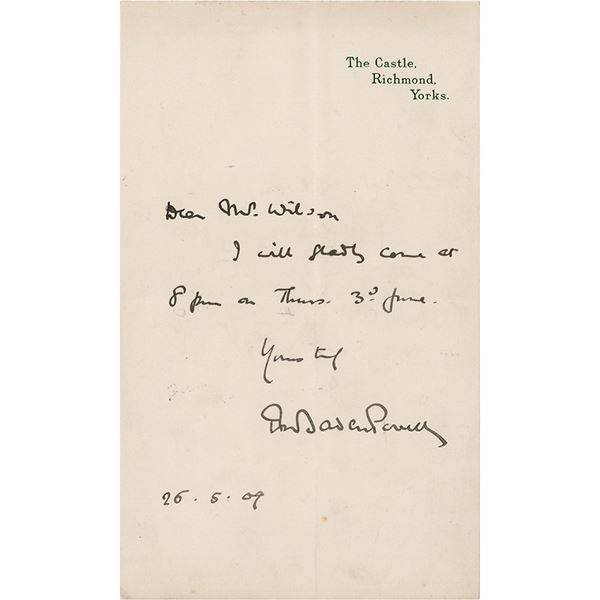 The Castle,
Richmond,
Yorks.
Dear Mr. Wilson
I will gladly come at
8 pm on Thurs. 3d June.
Yours try
RSSBaden Powell
26. 5. 09